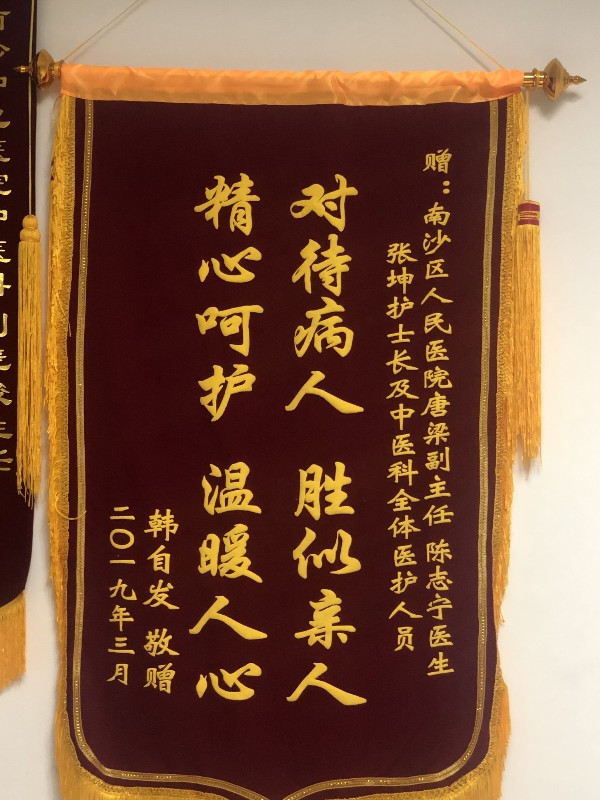 赠：南沙区人民医院唐梁副主任 陈志宁医生
张坤护士长及中医科全体医护人员
对待病人 胜似亲人
精心呵护 温暖人心
韩自发 敬赠
二〇一九年三月